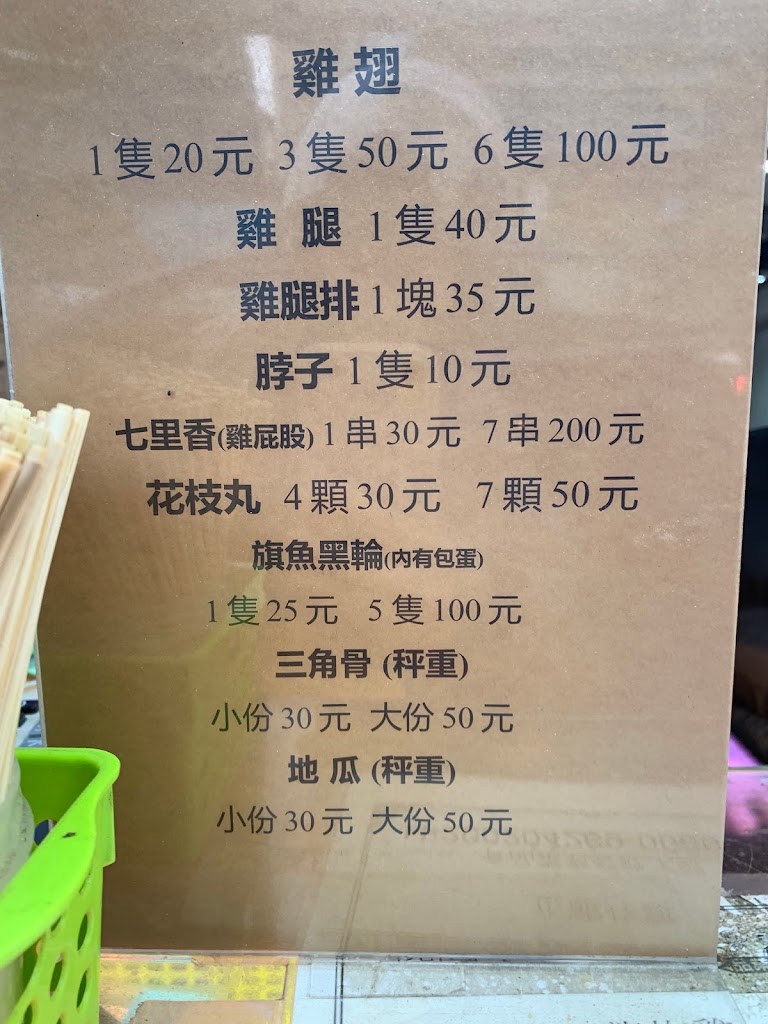 雞翅
1隻20元 3隻50元 6隻100元
雞腿 1隻40元
雞腿排1塊35元
脖子 1隻10元
七里香(雞屁股) 1串30元 7串200元
花枝丸 4顆30元 7顆50元
旗魚黑輪(內有包蛋)
1隻25元 5隻100元
三角骨 (秤重)
小份30元 大份50元
地瓜 (秤重)
小份30元 大份50元